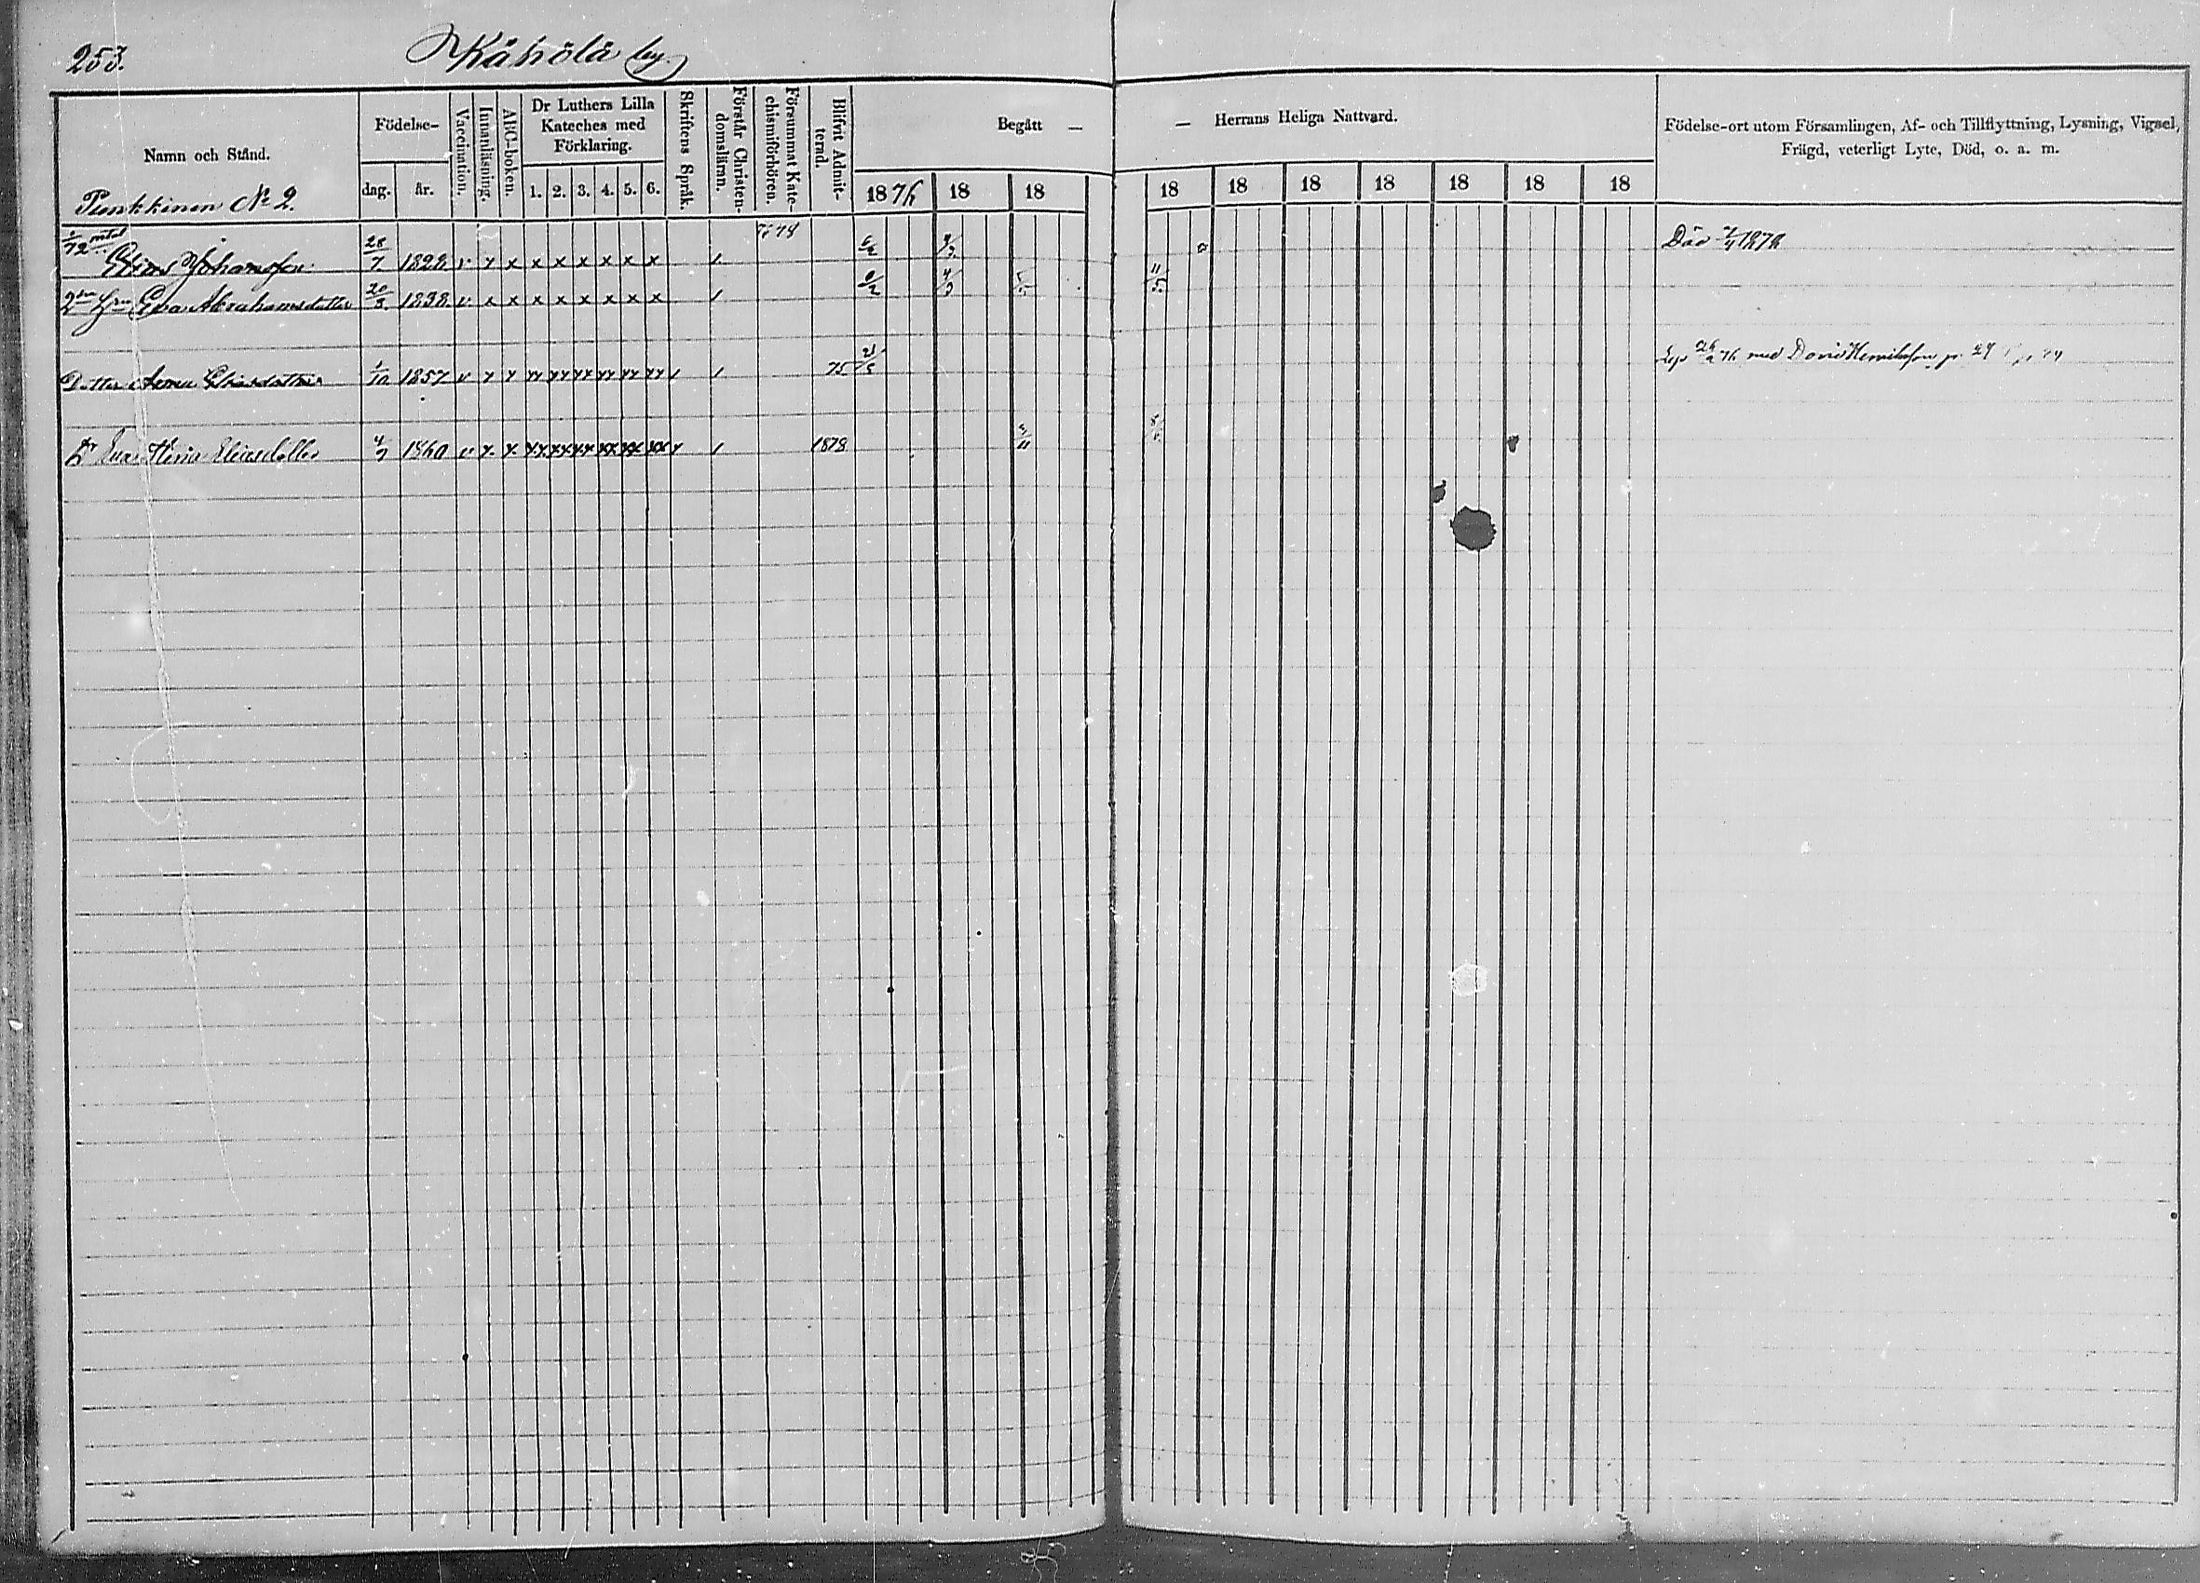 253. Kähölä by
Namn och Stånd.
Födelse-
dag.
år.
Vaccination.
Innanläsning.
ABC-boken.
Dr Luthers Lilla Kateches med Förklaring.
1. 2. 3. 4. 5. 6.
Skriftens Språk.
Förstår Christen-domsläran.
Försummat Kate-chismiförhören.
Blifvit Admit-terad.
Begått —
— Herrans Heliga Nattvard.
1876 18 18 18 18 18 18 18 18 18
Födelse-ort utom Församlingen, Af- och Tillflyttning, Lysning, Vigsel,
Frägd, veterligt Lyte, Död, o. a. m.
Punkkinen No 2.
1/72 mtal
Elias Johansson 28/7 1828 v x x x x x x x x / Död
2dra Hru Eva Abrahamsdotter 20/3 1838 v x x x x x x x x / 4/3 11/5
Dotter Anna Eliasdotter 1/10 1857 v x x xx xx xx xx xx xx / / 75 med David
Dr Eva Stina Eliasdotter 1860 v x x xx xx xx xx xx xx x / 1878